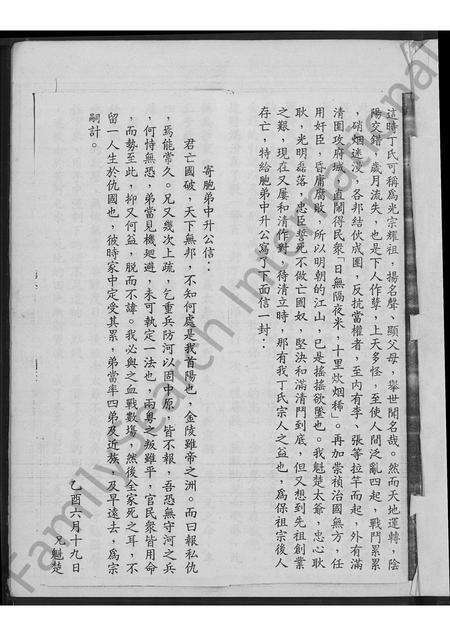 這時丁氏可稱為光宗耀祖，揚名聲，顯父母，舉世聞名哉。然而天地運轉，陰
陽交錯，歲月流失，也是下人作孽，上天多怪，至使人間泛亂四起，戰鬥累累
，硝烟迷漫，各邦結伙成團，反抗當權者，至內有李、張等拉竿而起，外有滿
清圍攻府域，直鬧得民衆「日無隔夜米，十里炊烟稀」。再加崇禎治國無方，任
用奸臣，昏庸腐敗，所以明朝的江山，已是搖搖欲墜也。我魁楚太爺，忠心耿
耿，光明磊落，忠臣誓死不做亡國奴，堅決和滿清鬥到底，但又想到先祖創業
之艱，現在又屢和清作對，待清立時，那有我丁氏宗人之益也，為保祖宗後人
存亡，特給胞弟中升公寫了下面信一封：
寄胞弟中升公信：
君亡國破，天下無邦，不知何處是我首陽也，金陵雖帝之洲。而曰報私仇
，焉能常久。兄又幾次上疏，乞重兵防河以固中原，皆不報，吾恐無守河之兵
，何恃無恐，弟當見機廻避，未可執定一法也，兩粵之叛雖平，官民衆皆用命
，而勢至此，抑又何益，脫而不諱。我必與之血戰數塲，然後全家死之耳，不
留一人生於仇國也，彼時家中定受其累，弟當率四弟及近族，及早遠去，為宗
嗣計。
乙酉六月十九日
兄魁楚
FamilySearch International